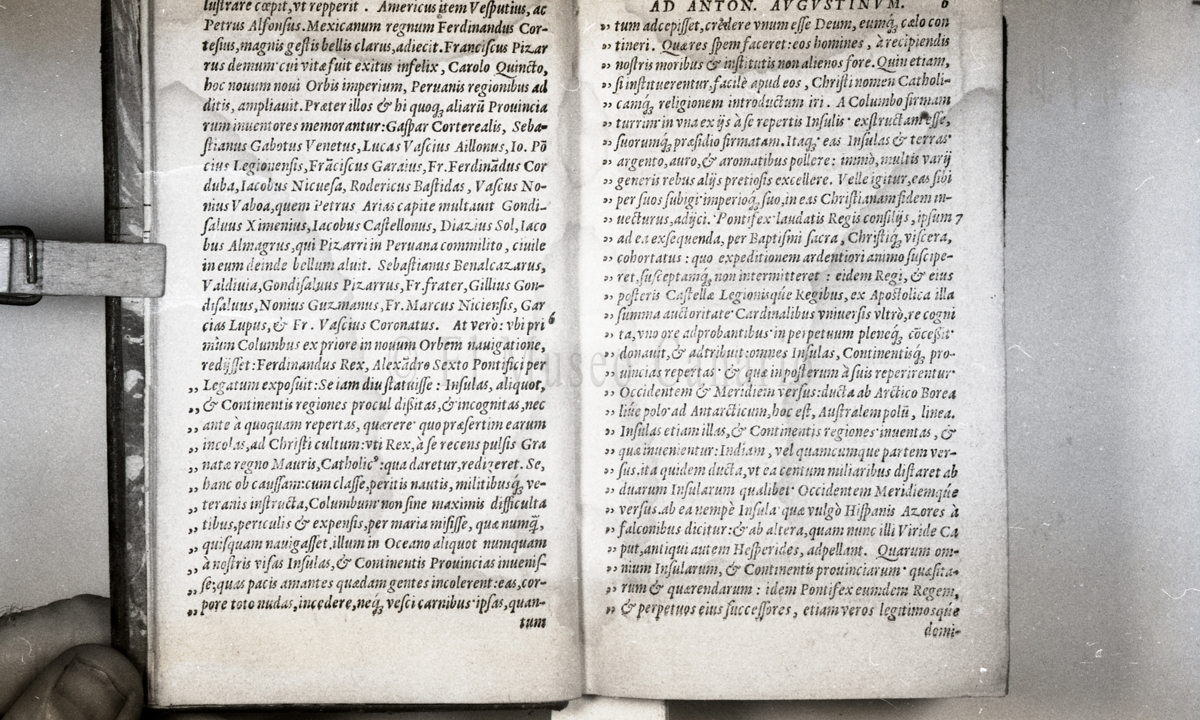 lustrare cœpit, vt repperit . Americus item Vesputius, ac
Petrus Alfonsus. Mexicanum regnum Ferdinandus Cor-
tesius, magnis gestis bellis clarus, adiecit. Franciscus Pizar
rus demum cui vitæ fuit exitus infelix, Carolo Quincto,
hoc nouum noui Orbis imperium, Peruanis regionibus ad
ditis, ampliauit. Præter illos & hi quoq; aliarũ Prouincia
rum inuentores memorantur: Gaspar Corterealis, Seba-
stianus Gabotus Venetus, Lucas Vascius Aillonus, Io. Põ
cius Legionensis, Frãciscus Garaius, Fr. Ferdinãdus Cor
duba, Iacobus Nicuesa, Rodericus Bastidas, Vascus No-
nius Vaboa, quem Petrus Arias capite multauit Gondi-
saluus Ximenius, Iacobus Castellonus, Diazius Sol, Iaco
bus Almagrus, qui Pizarri in Peruana commilito, ciuile
in eum deinde bellum aluit. Sebastianus Benalcazarus,
Valdiuia, Gondisaluus Pizarrus, Fr. frater, Gillius Gon-
disaluus, Nonius Guzmanus, Fr. Marcus Niciensis, Gar
cias Lupus, & Fr. Vascius Coronatus. At verò: vbi pri 6
mùm Columbus ex priore in nouum Orbem nauigatione,
redijsset: Ferdinandus Rex, Alexãdro Sexto Pontifici per
„ Legatum exposuit: Se iam diu statuisse : Insulas, aliquot,
„ & Continentis regiones procul dißitas, & incognitas, nec
„ ante à quoquam repertas, quærere quo præsertim earum
„ incolas, ad Christi cultum: vti Rex, à se recens pulsis Gra
„ natæ regno Mauris, Catholicꝰ: qua daretur, redigeret. Se,
„ hanc ob caussam: cum classe, peritis nautis, militibusq́; ve-
„ teranis instructa, Columbum non sine maximis difficulta
„ tibus, periculis & expensis, per maria misisse, quæ numq̃,
„ quisquam nauigasset, illum in Oceano aliquot numquam
„ à nostris visas Insulas, & Continentis Prouincias inuenis-
„ se; quas pacis amantes quædam gentes incolerent: eas, cor-
„ pore toto nudas, incedere, neq; vesci carnibus ipsas, quan-
tum
AD ANTON. AVGVSTINVM. 6
„ tum adcepisset, credere vnum esse Deum, eumq́; cælo con
„ tineri. Quæres spem faceret: eos homines, à recipiendis
„ nostris moribus & institutis non alienos fore. Quin etiam,
„ si instituerentur, facilè apud eos, Christi nomen Catholi-
„ camq́; religionem introductum iri. A Columbo firmam
„ turrim in vna ex ijs à se repertis Insulis exstructam esse,
„ suorumq́; præsidio firmatam. Itaq; eas Insulas & terras
„ argento, auro, & aromatibus pollere: immò, multis varij
„ generis rebus alijs pretiosis excellere. Velle igitur, eas sibi
„ per suos subigi imperioq́; suo, in eas Christianam fidem in-
„ uecturus, adijci. Pontifex laudatis Regis consilijs, ipsum 7
„ ad ea exsequenda, per Baptismi sacra, Christiq́; viscera,
„ cohortatus : quo expeditionem ardentiori animo suscipe-
„ ret, susceptamq́; non intermitteret : eidem Regi, & eius
„ posteris Castellæ Legionisq́ue Regibus, ex Apostolica illa
„ summa auctoritate Cardinalibus vniuersis vltrò, re cogni
„ ta, vno ore adprobantibus in perpetuum pleneq́; cõcessit
„ donauit, & adtribuit: omnes Insulas, Continentisq́; pro-
„ uincias repertas & quæ in posterum à suis reperirentur
„ Occidentem & Meridiem versus: ducta ab Arctico Borea
„ liúe polo ad Antarcticum, hoc est, Australem polũ, linea.
„ Insulas etiam illas, & Continentis regiones inuentas, &
„ quæ inuenientur: Indiam, vel quamcumque partem ver-
„ sus. ita quidem ducta, vt ea centum miliaribus distaret ab
„ duarum Insularum qualibet Occidentem Meridiemq́ue
„ versus. ab ea nempè Insula quæ vulgò Hispanis Azores à
„ falconibus dicitur: & ab altera, quam nunc illi Viride Ca
„ put, antiqui autem Hesperides, adpellant. Quarum om-
„ nium Insularum, & Continentis prouinciarum quæsita-
„ rum & quærendarum : idem Pontifex eumdem Regem,
„ & perpetuos eius successores, etiam veros legitimosq́ue
domi-